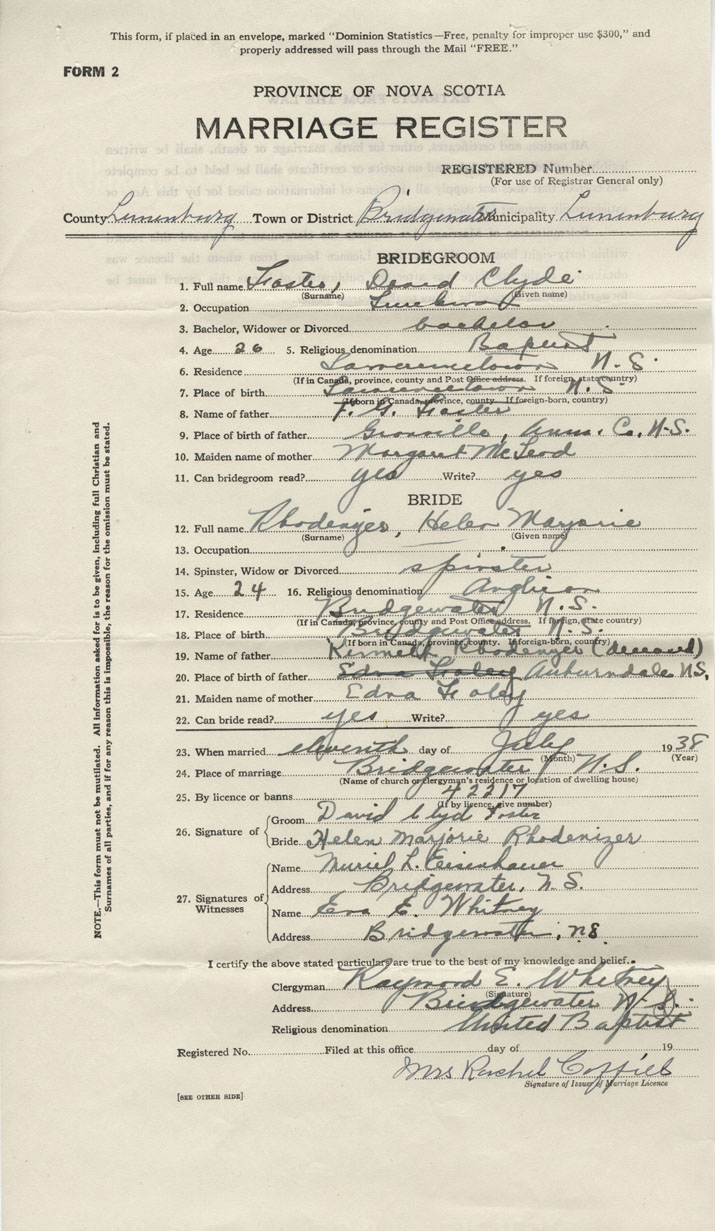 This form, if placed in an envelope, marked "Dominion Statistics—Free, penalty for improper use $300," and
properly addressed will pass through the Mail "FREE."
FORM 2
PROVINCE OF NOVA SCOTIA
MARRIAGE REGISTER
REGISTERED Number
(For use of Registrar General only)
County Lunenburg Town or District Bridgewater Municipality Lunenburg
BRIDEGROOM
1. Full name Foster, David Clyde
(Surname) (Given name)
2. Occupation
3. Bachelor, Widower or Divorced bachelor
4. Age 26 5. Religious denomination Baptist
6. Residence Lawrencetown N.S.
(If in Canada, province, county and Post Office address. If foreign, state country)
7. Place of birth Lawrencetown N.S.
(If born in Canada, province, county. If foreign-born, county)
8. Name of father F. G. Foster
9. Place of birth of father Granville, Ann. Co. N.S.
10. Maiden name of mother Margaret McLeod
11. Can bridegroom read? yes Write? yes
BRIDE
12. Full name Rhodenizer, Helen Marjorie
(Surname) (Given name)
13. Occupation
14. Spinster, Widow or Divorced spinster
15. Age 24 16. Religious denomination Anglican
17. Residence Bridgewater N.S.
(If in Canada, province, county and Post Office address. If foreign, state country)
18. Place of birth Bridgewater N.S.
(If born in Canada, province, county. If foreign-born, county)
19. Name of father Rhodenizer (deceased)
20. Place of birth of father Edna Foley Auburndale N.S.
21. Maiden name of mother Edna Foley
22. Can bride read? yes Write? yes
23. When married eleventh day of July 1938
(Month) (Year)
24. Place of marriage Bridgewater N.S.
(Name of church or clergyman's residence or location of dwelling house)
25. By licence or banns 42217
(If by licence, give number)
26. Signature of Groom David Clyde Foster
Bride Helen Marjorie Rhodenizer
27. Signatures of Witnesses
Name Muriel L. Eisenhauer
Address Bridgewater, N.S.
Name Eva E. Whitney
Address Bridgewater, N.S.
I certify the above stated particulars are true to the best of my knowledge and belief.
Clergyman Raymond E. Whitney
(Signature)
Address Bridgewater N.S.
Religious denomination United Baptist
Registered No. Filed at this office day of 19
Mrs Rachel
Signature of Issuer of Marriage Licence
[SEE OTHER SIDE]
NOTE.—This form must not be mutilated. All information asked for is to be given, including full Christian and
Surnames of all parties, and if for any reason this is impossible, the reason for the omission must be stated.